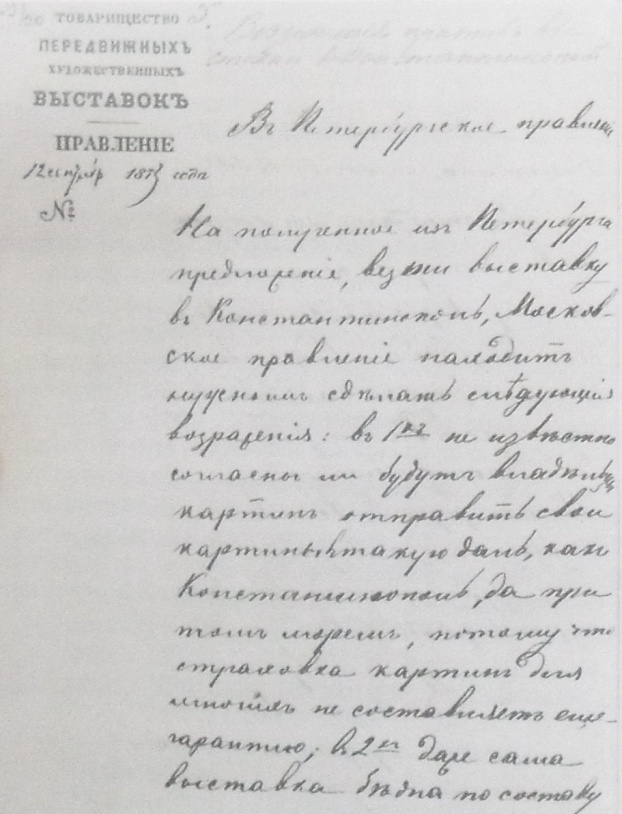 ТОВАРИЩЕСТВО
ПЕРЕДВИЖНЫХЪ
ХУДОЖЕСТВЕННЫХЪ
ВЫСТАВОКЪ
ПРАВЛЕНІЕ
года
№
Въ Петербургское правленіе
На полученное изъ Петербурга
предложеніе, везти выставку
въ Константинополь, Москов-
ское правленіе находитъ
нужнымъ сдѣлать слѣдующія
возраженія: въ 1хъ не извѣстно
согласны ли будутъ владѣльцы
картинъ отправить свои
картины въ такую даль, какъ
Константинополь, да при
томъ моремъ, потому что
страховка картинъ для
многихъ не составляетъ еще
гарантію; въ 2хъ даже сама
выставка бѣдна по составу